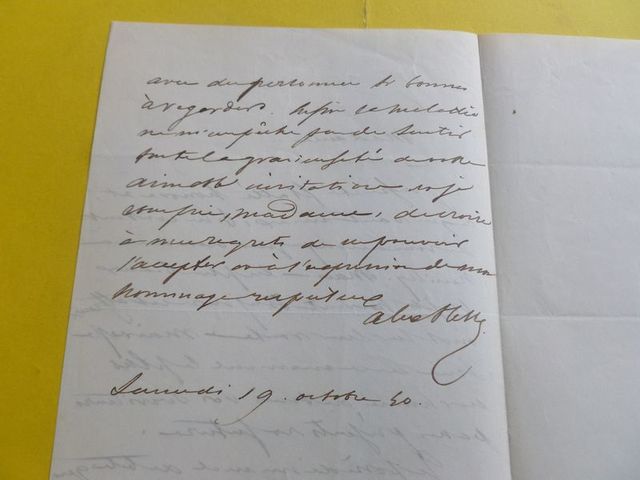 avec des personnes si bonnes
à regarder. Enfin la maladie
ne m'empêche pas de sentir
toute la gracieuseté de votre
aimable invitation, je
vous prie, madame, de croire
à mes regrets de ne pouvoir
l'accepter et à l'expression de mon
hommage respectueux
Samedi 19. octobre 50.